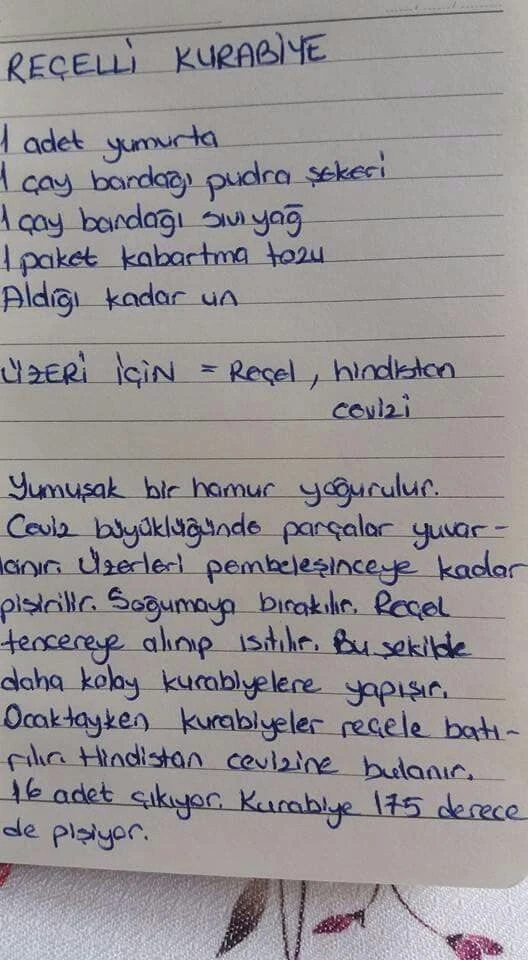 REÇELLİ KURABİYE
1 adet yumurta
1 çay bardağı pudra şekeri
1 çay bardağı sıvıyağ
1 paket kabartma tozu
Aldığı kadar un
ÜZERİ İÇİN = Reçel, hindistan
cevizi
Yumuşak bir hamur yoğurulur.
Ceviz büyüklüğünde parçalar yuvar-
lanır. Üzerleri pembeleşinceye kadar
pişirilir. Soğumaya bırakılır. Reçel
tencereye alınıp ısıtılır. Bu şekilde
daha kolay kurabiyelere yapışır.
Ocaktayken kurabiyeler reçele batı-
rılır. Hindistan cevizine bulanır.
16 adet çıkıyor. Kurabiye 175 derece
de pişiyor.